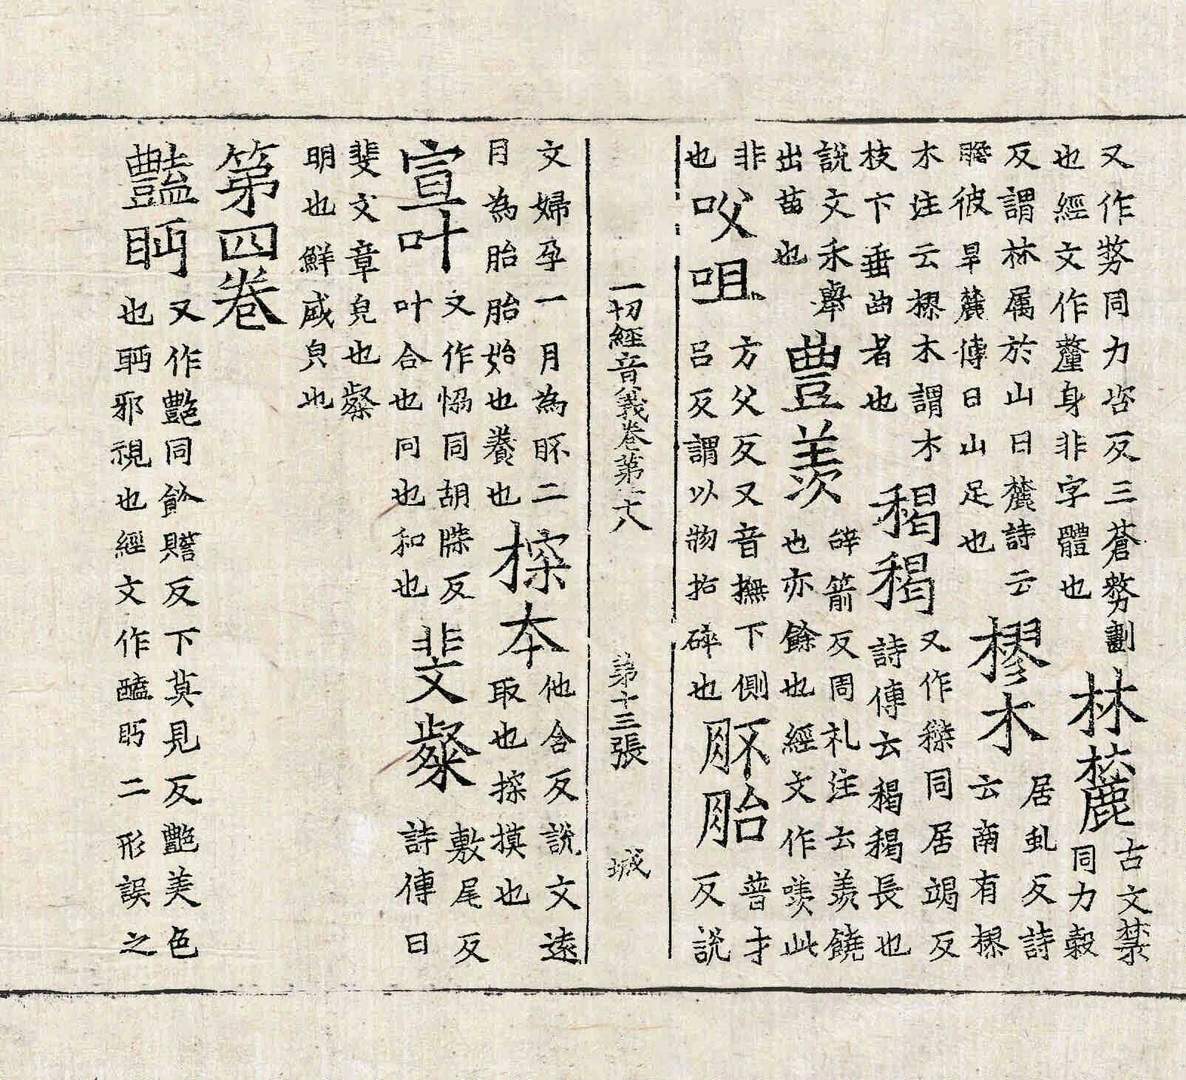 又作剺同力咨反三蒼剺劃
也經文作釐身非字體也
林麓
古文禁
同力穀
反謂林属於山曰麓詩云
瞻彼旱麓傳曰山足也
樛木
居虬反詩
云南有樛
木注云樛木謂木
枝下垂曲者也
䅥䅥
又作同居竭反
詩傳云䅥䅥長也
說文禾舉
出苗也
豊羨
辝箭反周礼注云羨饒
也亦餘也經文作此
非
也
㕮咀
方父反又音撫下側
呂反謂以物拍碎也
肧胎
普才
反説
一切經音義卷第十八 第十三張 城
文婦孕一月為肧二
月為胎胎始也養也
探本
他含反説文遠
取也探摸也
宣叶
文作恊同胡牒反
叶合也同也和也
斐粲
敷尾反
詩傳曰
斐文章皃也粲
明也鮮盛皃也
第四卷
豔眄
又作艷同餘贍反下莫見反艷美色
也眄邪視也經文作眄二形誤之